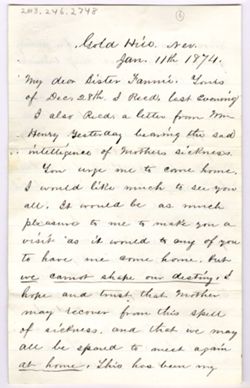 2013.246.2748
6
Gold Hill. Nev.
Jan. 11th 1874.
My dear Sister Fannie. Yours
of Dec. 28th. I Recd, last evening
I also Recd, a letter from Wm
Henry Yesterday bearing the sad
intelligence of Mothers sickness.
You urge me to come home.
I would like much to see you
all. It would be as much
pleasure to me to make you a
visit as it would to any of you
to have me come home. but
we cannot shape our destiny. I
hope and trust, that Mother
may recover from this spell
of sickness. and that we may
all be spared to meet again
at home. This has been my